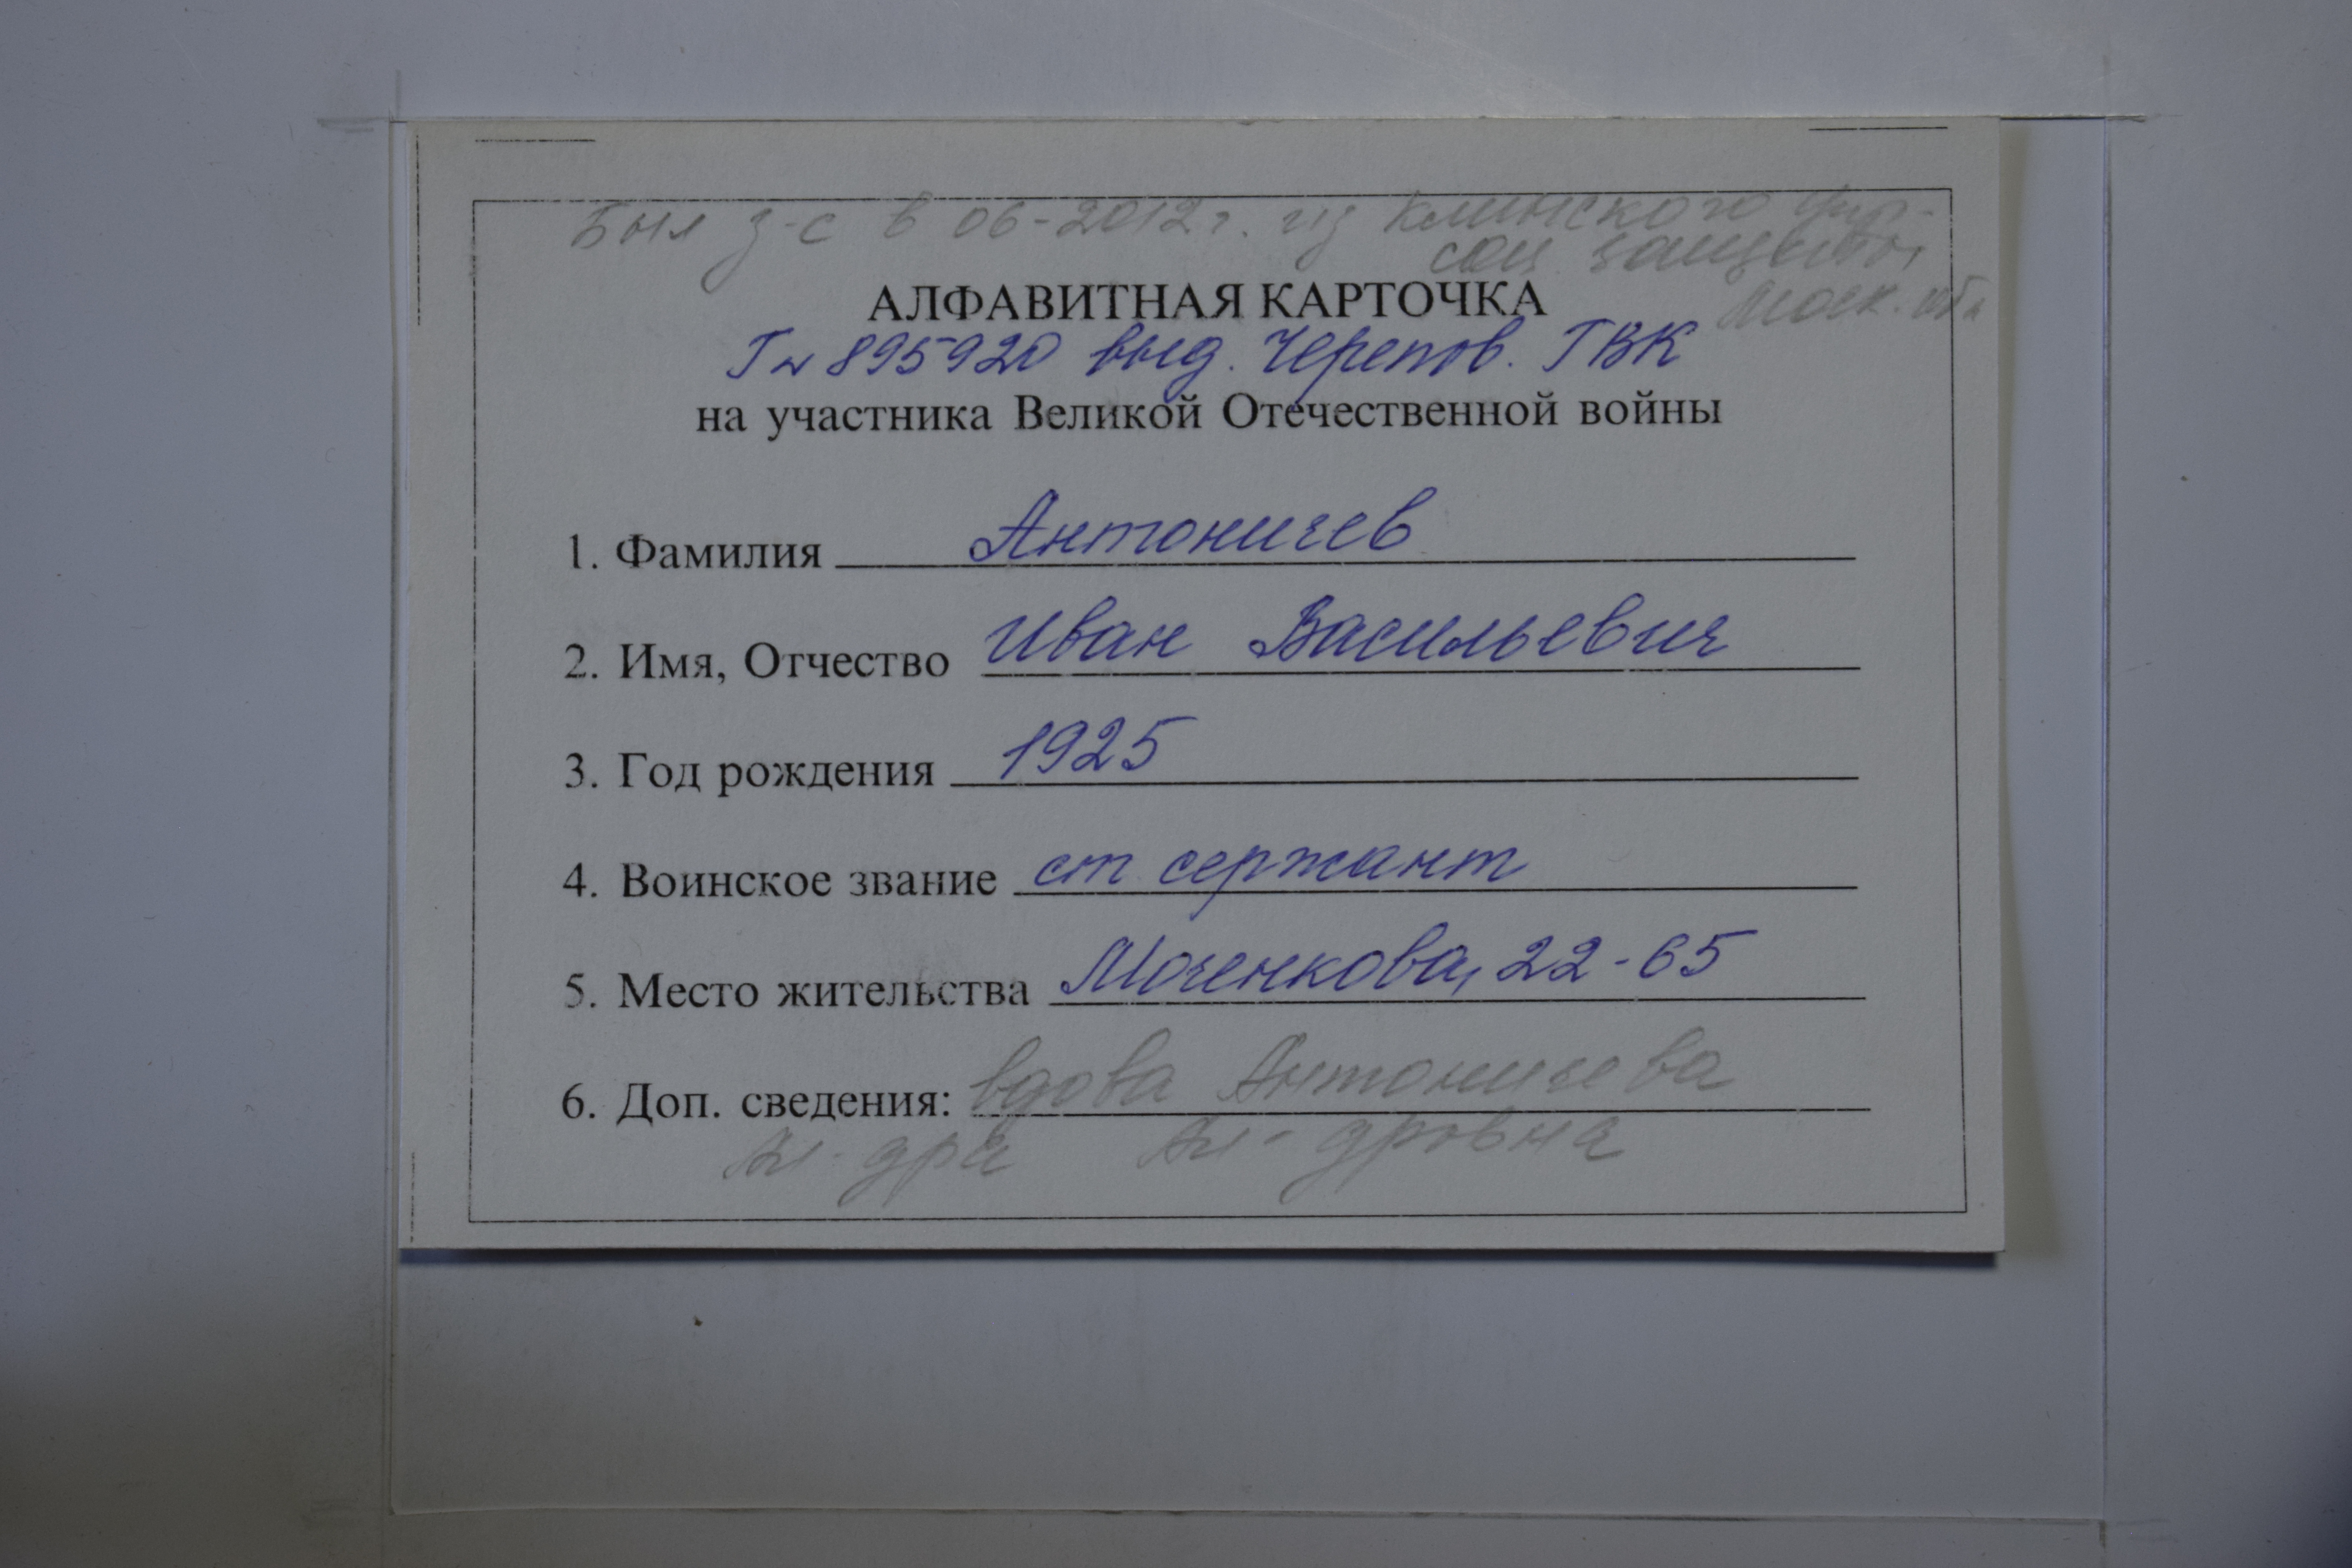 Был з-с в 06-2012г. из Клинского упр-
соц. защиты
Моск. обл
АЛФАВИТНАЯ КАРТОЧКА
Гн 895920 выд. Черепов. ГВК
на участника Великой Отечественной войны
1. Фамилия Антоничев
2. Имя, Отчество Иван Васильевич
3. Год рождения 1925
4. Воинское звание ст сержант
5. Место жительства Моченкова, 22-65
6. Доп. сведения: вдова Антоничева
Ал-дра Ал-дровна